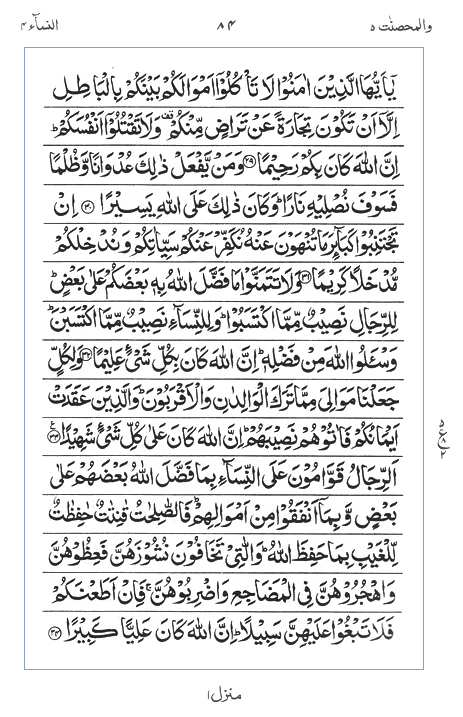 والمحصنٰت ۵ ۸۴ النسآء ۴
يٰۤاَيُّهَا الَّذِيْنَ اٰمَنُوْا لَا تَاْكُلُوْۤا اَمْوَالَكُمْ بَيْنَكُمْ بِالْبَاطِلِ
اِلَّاۤ اَنْ تَكُوْنَ تِجَارَةً عَنْ تَرَاضٍ مِّنْكُمْ ۫ وَلَا تَقْتُلُوْۤا اَنْفُسَكُمْ ؕ
اِنَّ اللّٰهَ كَانَ بِكُمْ رَحِيْمًا ﴿۲۹﴾ وَمَنْ يَّفْعَلْ ذٰلِكَ عُدْوَانًا وَّظُلْمًا
فَسَوْفَ نُصْلِيْهِ نَارًا ؕ وَكَانَ ذٰلِكَ عَلَى اللّٰهِ يَسِيْرًا ﴿۳۰﴾ اِنْ
تَجْتَنِبُوْا كَبَآئِرَ مَا تُنْهَوْنَ عَنْهُ نُكَفِّرْ عَنْكُمْ سَيِّاٰتِكُمْ وَنُدْخِلْكُمْ
مُّدْخَلًا كَرِيْمًا ﴿۳۱﴾ وَلَا تَتَمَنَّوْا مَا فَضَّلَ اللّٰهُ بِهٖ بَعْضَكُمْ عَلٰى بَعْضٍ ؕ
لِلرِّجَالِ نَصِيْبٌ مِّمَّا اكْتَسَبُوْا ؕ وَلِلنِّسَآءِ نَصِيْبٌ مِّمَّا اكْتَسَبْنَ ؕ
وَسْـَٔلُوا اللّٰهَ مِنْ فَضْلِهٖ ؕ اِنَّ اللّٰهَ كَانَ بِكُلِّ شَىْءٍ عَلِيْمًا ﴿۳۲﴾ وَلِكُلٍّ
جَعَلْنَا مَوَالِىَ مِمَّا تَرَكَ الْوَالِدٰنِ وَالْاَقْرَبُوْنَ ؕ وَالَّذِيْنَ عَقَدَتْ
اَيْمَانُكُمْ فَاٰتُوْهُمْ نَصِيْبَهُمْ ؕ اِنَّ اللّٰهَ كَانَ عَلٰى كُلِّ شَىْءٍ شَهِيْدًا ﴿۳۳﴾
اَلرِّجَالُ قَوَّامُوْنَ عَلَى النِّسَآءِ بِمَا فَضَّلَ اللّٰهُ بَعْضَهُمْ عَلٰى
بَعْضٍ وَّبِمَاۤ اَنْفَقُوْا مِنْ اَمْوَالِهِمْ ؕ فَالصّٰلِحٰتُ قٰنِتٰتٌ حٰفِظٰتٌ
لِّلْغَيْبِ بِمَا حَفِظَ اللّٰهُ ؕ وَالّٰتِىْ تَخَافُوْنَ نُشُوْزَهُنَّ فَعِظُوْهُنَّ
وَاهْجُرُوْهُنَّ فِى الْمَضَاجِعِ وَاضْرِبُوْهُنَّ ۚ فَاِنْ اَطَعْنَكُمْ
فَلَا تَبْغُوْا عَلَيْهِنَّ سَبِيْلًا ؕ اِنَّ اللّٰهَ كَانَ عَلِيًّا كَبِيْرًا ﴿۳۴﴾
۵
ع ۸
۲
منزل ۱